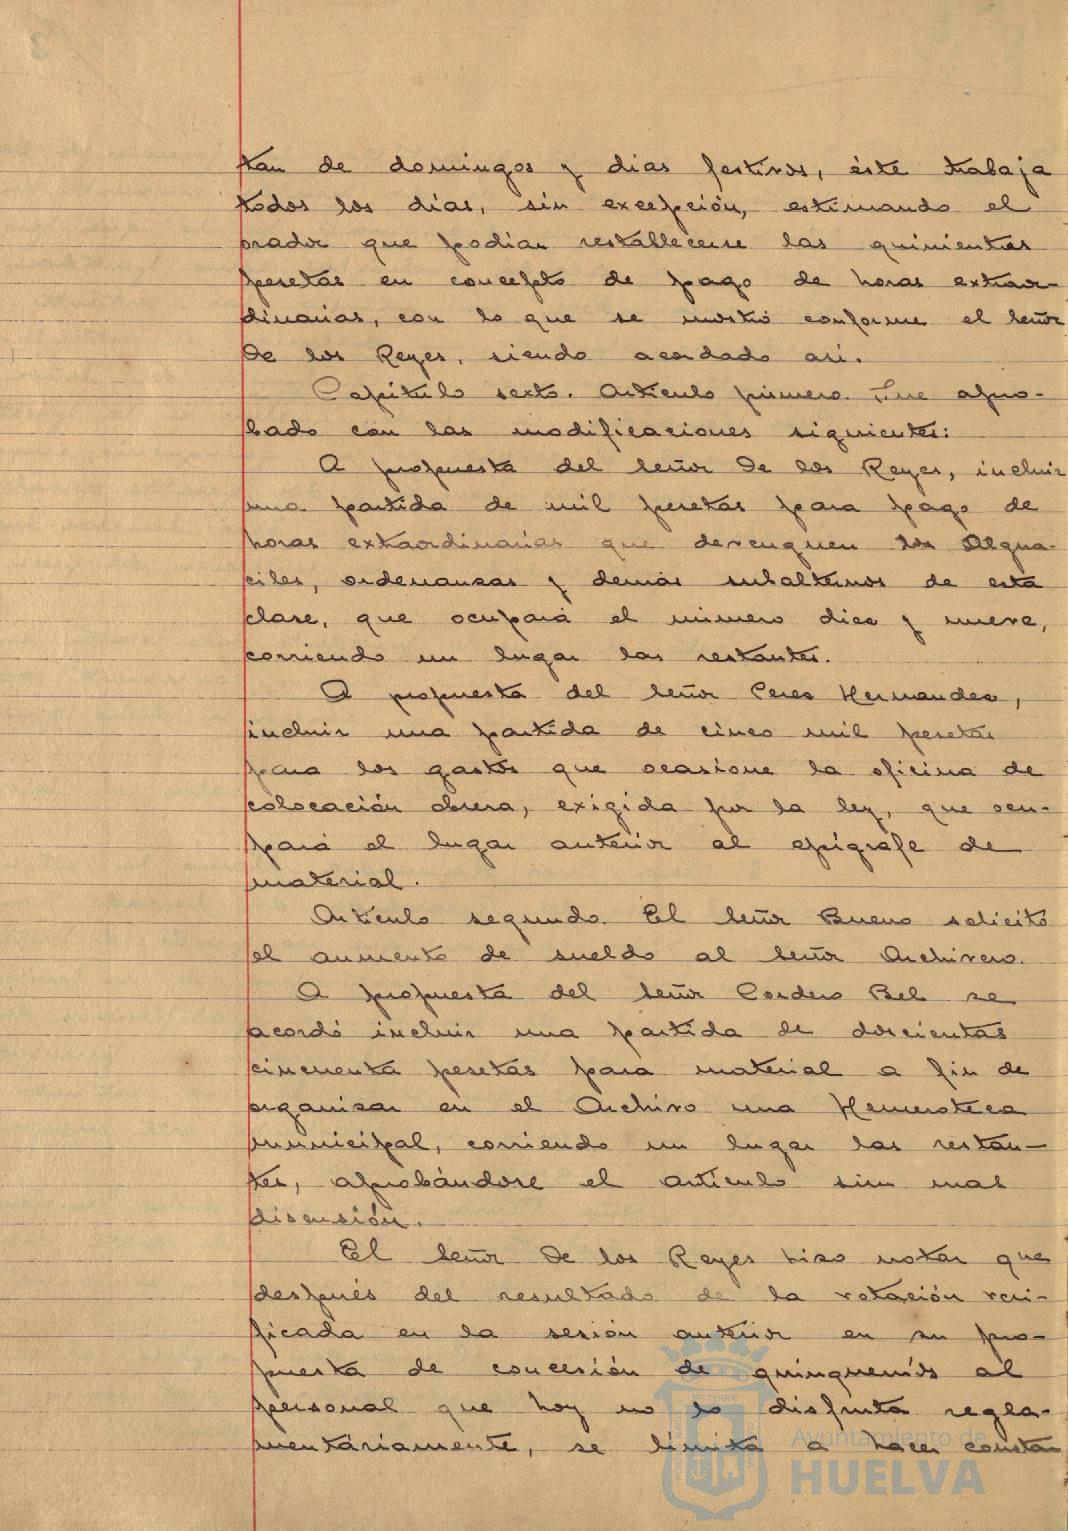 tan de domingos y dias festivos, éste trabaja
todos los días, sin excepción, estimando el
orador que podian restablecerse las quinientas
pesetas en concepto de pago de horas extraor-
dinarias, con lo que se mostró conforme el señor
De los Reyes, siendo acordado asi.
Capitulo sexto. Articulo primero. Fue apro-
bado con las modificaciones siguientes:
A propuesta del señor De los Reyes, incluir
una partida de mil pesetas para pago de
horas extraordinarias que devenguen los Algua-
ciles, ordenanzas y demás subalternos de esta
clase, que ocupará el número diez y nueve,
corriendo un lugar las restantes.
A propuesta del señor Peres Hernandez,
incluir una partida de cinco mil pesetas
para los gastos que ocasione la oficina de
colocación obrera, exigida por la ley, que ocu-
pará el lugar anterior al epigrafe de
material.
Articulo segundo. El señor Bueno solicitó
el aumento de sueldo al señor Archivero.
A propuesta del señor Cordero Bel se
acordó incluir una partida de doscientas
cincuenta pesetas para material a fin de
organizar en el Archivo una Hemeroteca
municipal, corriendo un lugar las restan-
tes, aprobándose el articulo sin mas
discusión.
El señor De los Reyes hizo notar que
después del resultado de la votación veri-
ficada en la sesión anterior en su pro-
puesta de concesión de quinquenios al
personal que hoy no lo disfruta regla-
mentáriamente, se limita a hacer constar
Ayuntamiento de
HUELVA